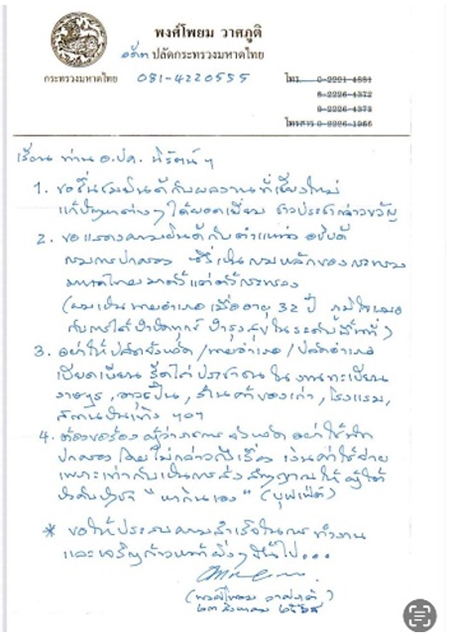 พงศ์โพยม วาศภูติ
อดีต ปลัดกระทรวงมหาดไทย
กระทรวงมหาดไทย 081-4220555
โทร. 0-2221-4881
0-2226-4372
0-2226-4373
โทรสาร 0-2226-1966
เรียน ท่าน อ.ปค. นิรัตน์ฯ
1. ขอชื่นชมยินดีกับผลงานที่เชียงใหม่
แก้ปัญหาต่างๆ ได้ยอดเยี่ยม ชาวประชากล่าวขวัญ
2. ขอแสดงความยินดีกับตำแหน่ง อธิบดี
กรมการปกครอง ซึ่งเป็นกรมหลักของกระทรวง
มหาดไทยมาตั้งแต่ตั้งกระทรวง
(ผมเป็นนายอำเภอ เมื่ออายุ 32 ปี ภูมิใจเสมอ
กับการได้บำบัดทุกข์ บำรุงสุขในระดับพื้นที่)
3. อย่าให้ปลัดจังหวัด/นายอำเภอ/ปลัดอำเภอ
เบียดเบียน รีดไถ ประชาชน ใน งานทะเบียน
ราษฎร, อาวุธปืน, ค้าของเก่า, โรงแรม,
สถานบันเทิง ฯลฯ
4. ต้องขอร้อง ผู้ว่าราชการจังหวัด อย่าใช้ฝ่าย
ปกครอง โดยไม่กล่าวถึงเรื่อง เงินค่าใช้จ่าย
เพราะเท่ากับเป็นการส่งสัญญาณให้ ผู้ใต้
บังคับบัญชา "หากินเอง" (บุฟเฟ่ต์)
* ขอให้ประสบความสำเร็จในการทำงาน
และเจริญก้าวหน้ายิ่งๆ ขึ้นไป...
(พงศ์โพยม วาศภูติ)
๒๓ สิงหาคม ๒๕๖๘